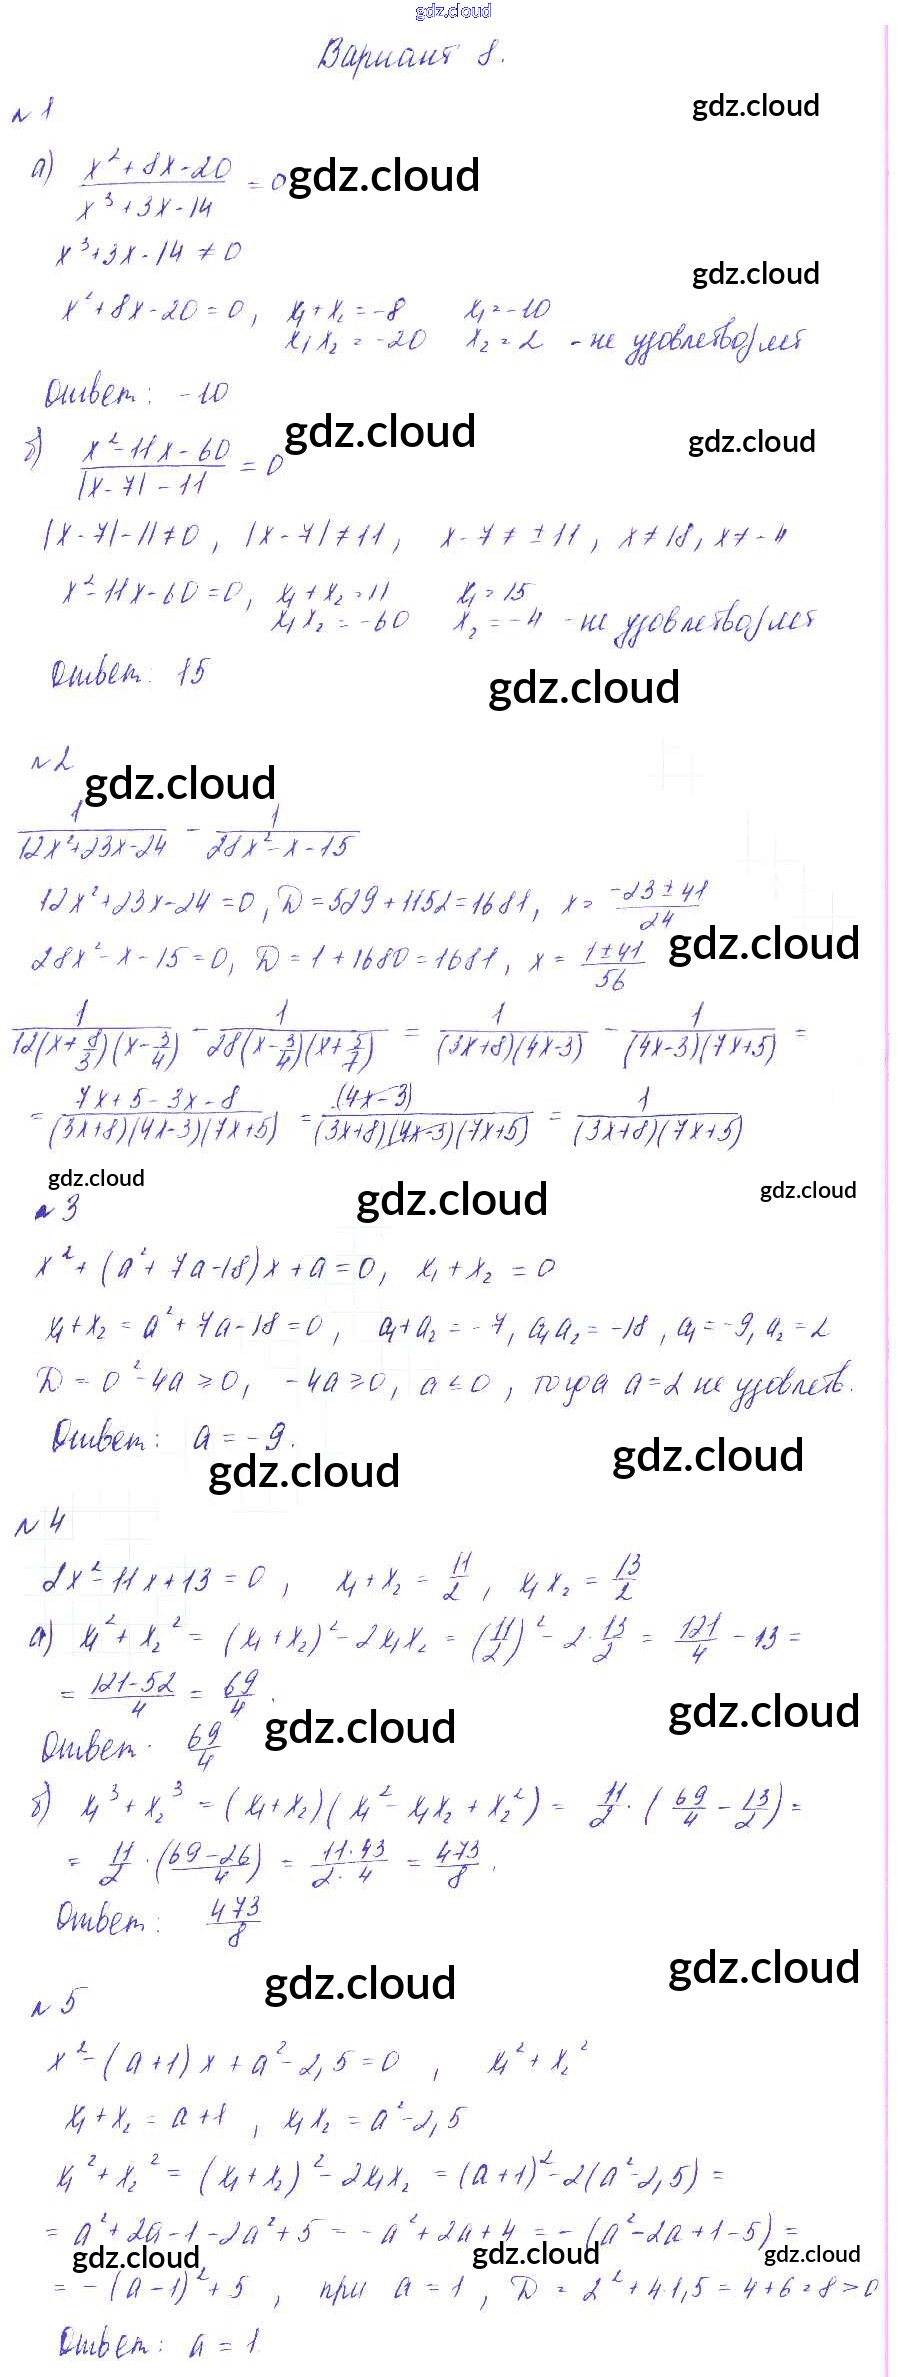 gdz.cloud
Вариант 8.
№ 1
gdz.cloud
а) (x² + 8x - 20)/(x³ + 3x - 14) = 0
gdz.cloud
x³ + 3x - 14 ≠ 0
gdz.cloud
x² + 8x - 20 = 0, x₁ + x₂ = -8 x₁ = -10
x₁ x₂ = -20 x₂ = 2 - не удовлетворяет
Ответ: -10
gdz.cloud
gdz.cloud
б) (x² - 11x - 60)/(|x - 7| - 11) = 0
|x - 7| - 11 ≠ 0, |x - 7| ≠ 11, x - 7 ≠ ±11, x ≠ 18, x ≠ -4
x² - 11x - 60 = 0, x₁ + x₂ = 11 x₁ = 15
x₁ x₂ = -60 x₂ = -4 - не удовлетворяет
Ответ: 15
gdz.cloud
№ 2
gdz.cloud
1/(12x² + 23x - 24) - 1/(28x² - x - 15)
12x² + 23x - 24 = 0, D = 529 + 1152 = 1681, x = (-23 ± 41)/24
gdz.cloud
28x² - x - 15 = 0, D = 1 + 1680 = 1681, x = (1 ± 41)/56
1/(12(x + 8/3)(x - 3/4)) - 1/(28(x - 3/4)(x + 5/7)) = 1/((3x+8)(4x-3)) - 1/((4x-3)(7x+5)) =
= (7x + 5 - 3x - 8)/((3x+8)(4x-3)(7x+5)) = (4x-3)/((3x+8)(4x-3)(7x+5)) = 1/((3x+8)(7x+5))
gdz.cloud
gdz.cloud
gdz.cloud
№ 3
x² + (a² + 7a - 18)x + a = 0, x₁ + x₂ = 0
x₁ + x₂ = a² + 7a - 18 = 0, a₁ + a₂ = -7, a₁ a₂ = -18, a₁ = -9, a₂ = 2
D = 0² - 4a ≥ 0, -4a ≥ 0, a ≤ 0, тогда a = 2 не удовлетв.
Ответ: a = -9.
gdz.cloud
gdz.cloud
№ 4
2x² - 11x + 13 = 0, x₁ + x₂ = 11/2, x₁ x₂ = 13/2
а) x₁² + x₂² = (x₁ + x₂)² - 2x₁x₂ = (11/2)² - 2·13/2 = 121/4 - 13 =
= (121 - 52)/4 = 69/4.
gdz.cloud
gdz.cloud
Ответ. 69/4
б) x₁³ + x₂³ = (x₁ + x₂)(x₁² - x₁x₂ + x₂²) = 11/2 · (69/4 - 13/2) =
= 11/2 · ((69 - 26)/4) = (11·43)/(2·4) = 473/8.
Ответ: 473/8
gdz.cloud
gdz.cloud
№ 5
x² - (a+1)x + a² - 2,5 = 0, x₁² + x₂²
x₁ + x₂ = a + 1, x₁ x₂ = a² - 2,5
x₁² + x₂² = (x₁ + x₂)² - 2x₁x₂ = (a+1)² - 2(a² - 2,5) =
= a² + 2a - 1 - 2a² + 5 = -a² + 2a + 4 = -(a² - 2a + 1 - 5) =
gdz.cloud
gdz.cloud
gdz.cloud
= -(a - 1)² + 5, при a = 1, D = 2² + 4·1,5 = 4 + 6 = 8 > 0
Ответ: a = 1